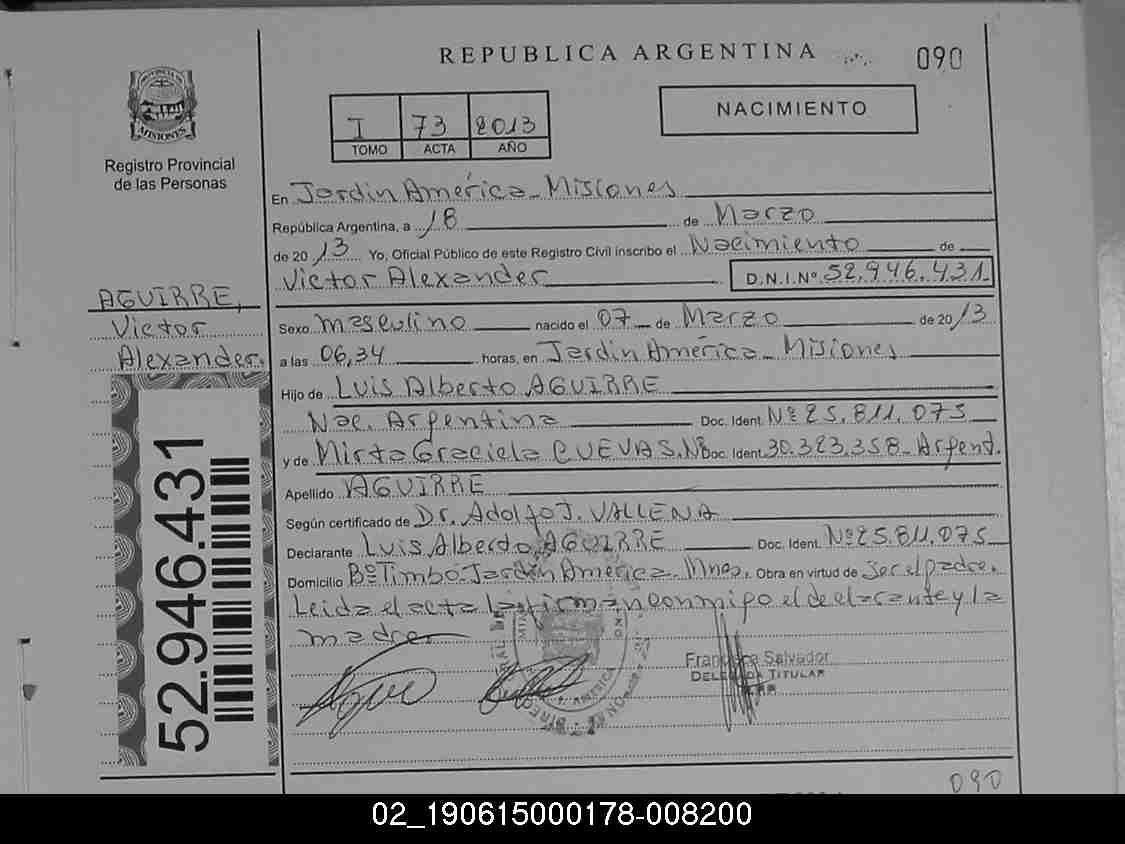 REPUBLICA ARGENTINA
090
PROVINCIA DE
MISIONES
Registro Provincial
de las Personas
I 73 2013
TOMO ACTA AÑO
NACIMIENTO
En Jardin América - Misiones
República Argentina, a 18 de Marzo
de 2013 Yo, Oficial Público de este Registro Civil inscribo el Nacimiento de
Victor Alexander D.N.I.Nº 52.946.431
AGUIRRE,
Victor
Alexander.
Sexo masculino nacido el 07 de Marzo de 2013
a las 06,34 horas, en Jardin América - Misiones
Hijo de Luis Alberto AGUIRRE
Nac. Argentina Doc. Ident. Nº 25.811.075
y de Mirta Graciela CUEVAS. Nº Doc. Ident. 30.323.358 - Argent.
Apellido AGUIRRE
Según certificado de Dr. Adolfo J. VALLENA
Declarante Luis Alberto AGUIRRE Doc. Ident. Nº 25.811.075
Domicilio Bº Timbó - Jardin América - Mnes. Obra en virtud de ser el padre.
Leida el acta la firman conmigo el declarante y la
madre
52.946.431
Salvador
TITULAR
090
02_190615000178-008200